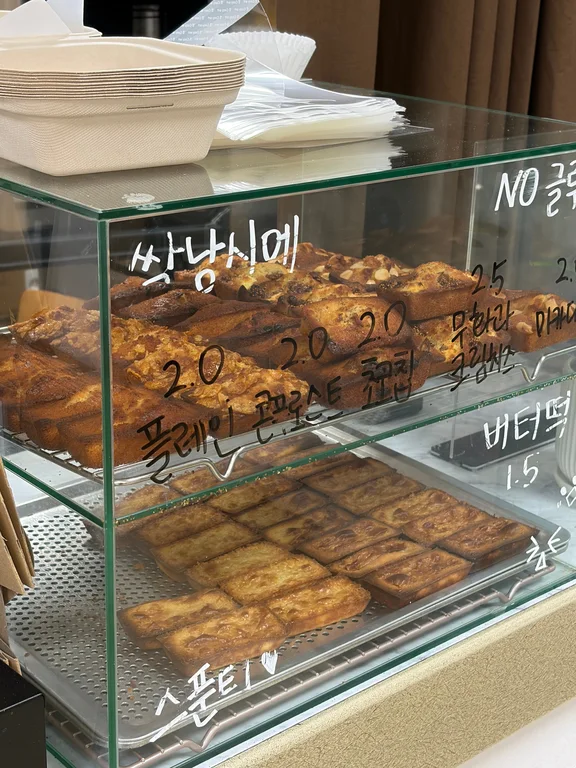 NO 글루
싹남식메
2.0
플레인
2.0
콘프로스트
2.0
초코칩
2.5
무화과
크림치즈
2.
마카다
버터떡
1.5
스푼티♥